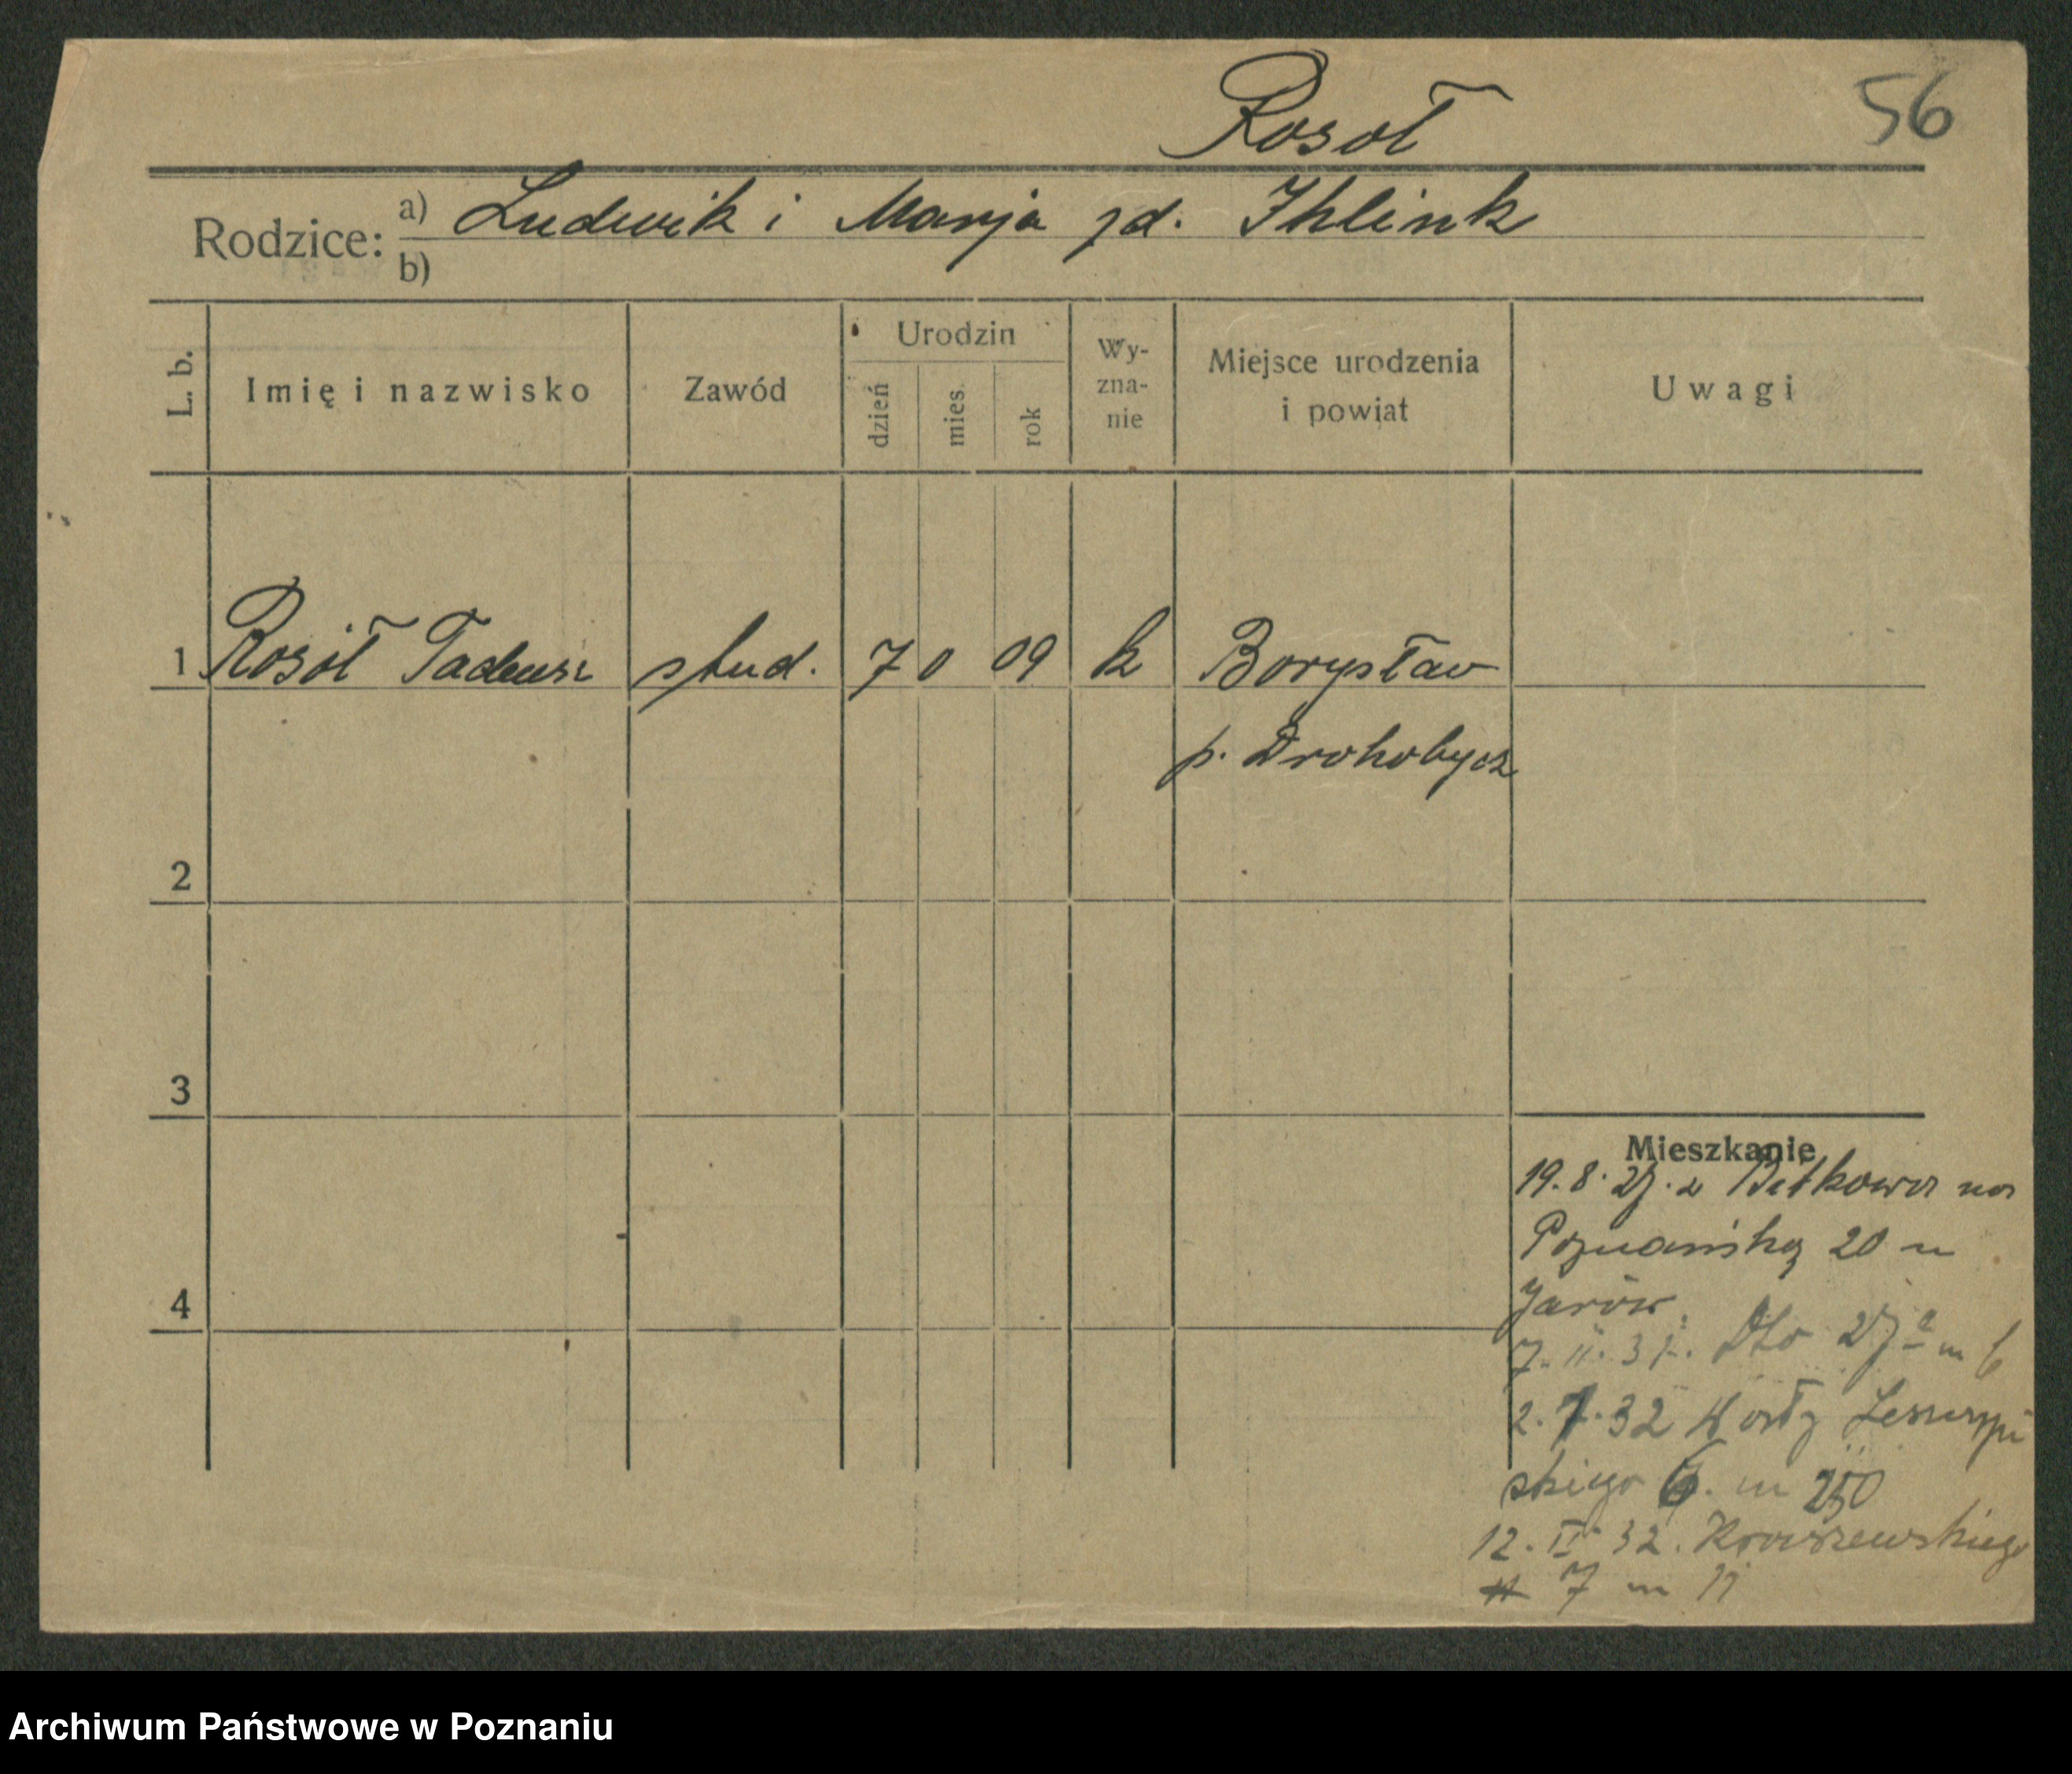 Rosół
56
Rodzice: a) Ludwik i Marja zd. Ihlink
b)
L. b.
Imię i nazwisko
Zawód
Urodzin
dzień
mies.
rok
Wy-
zna-
nie
Miejsce urodzenia
i powiat
Uwagi
1 Rosół Tadeusz stud. 7 0 09 k Borysław
p. Drohobycz
2
3
Mieszkanie
19. 8. 27. z Bitkowa na
Poznańską 20 u
4
7. 11. 31. Dto 27a m 6
2. 7. 32
skiego 6. m 250
12. 32. Kraszewskiego
7 m 11
Archiwum Państwowe w Poznaniu